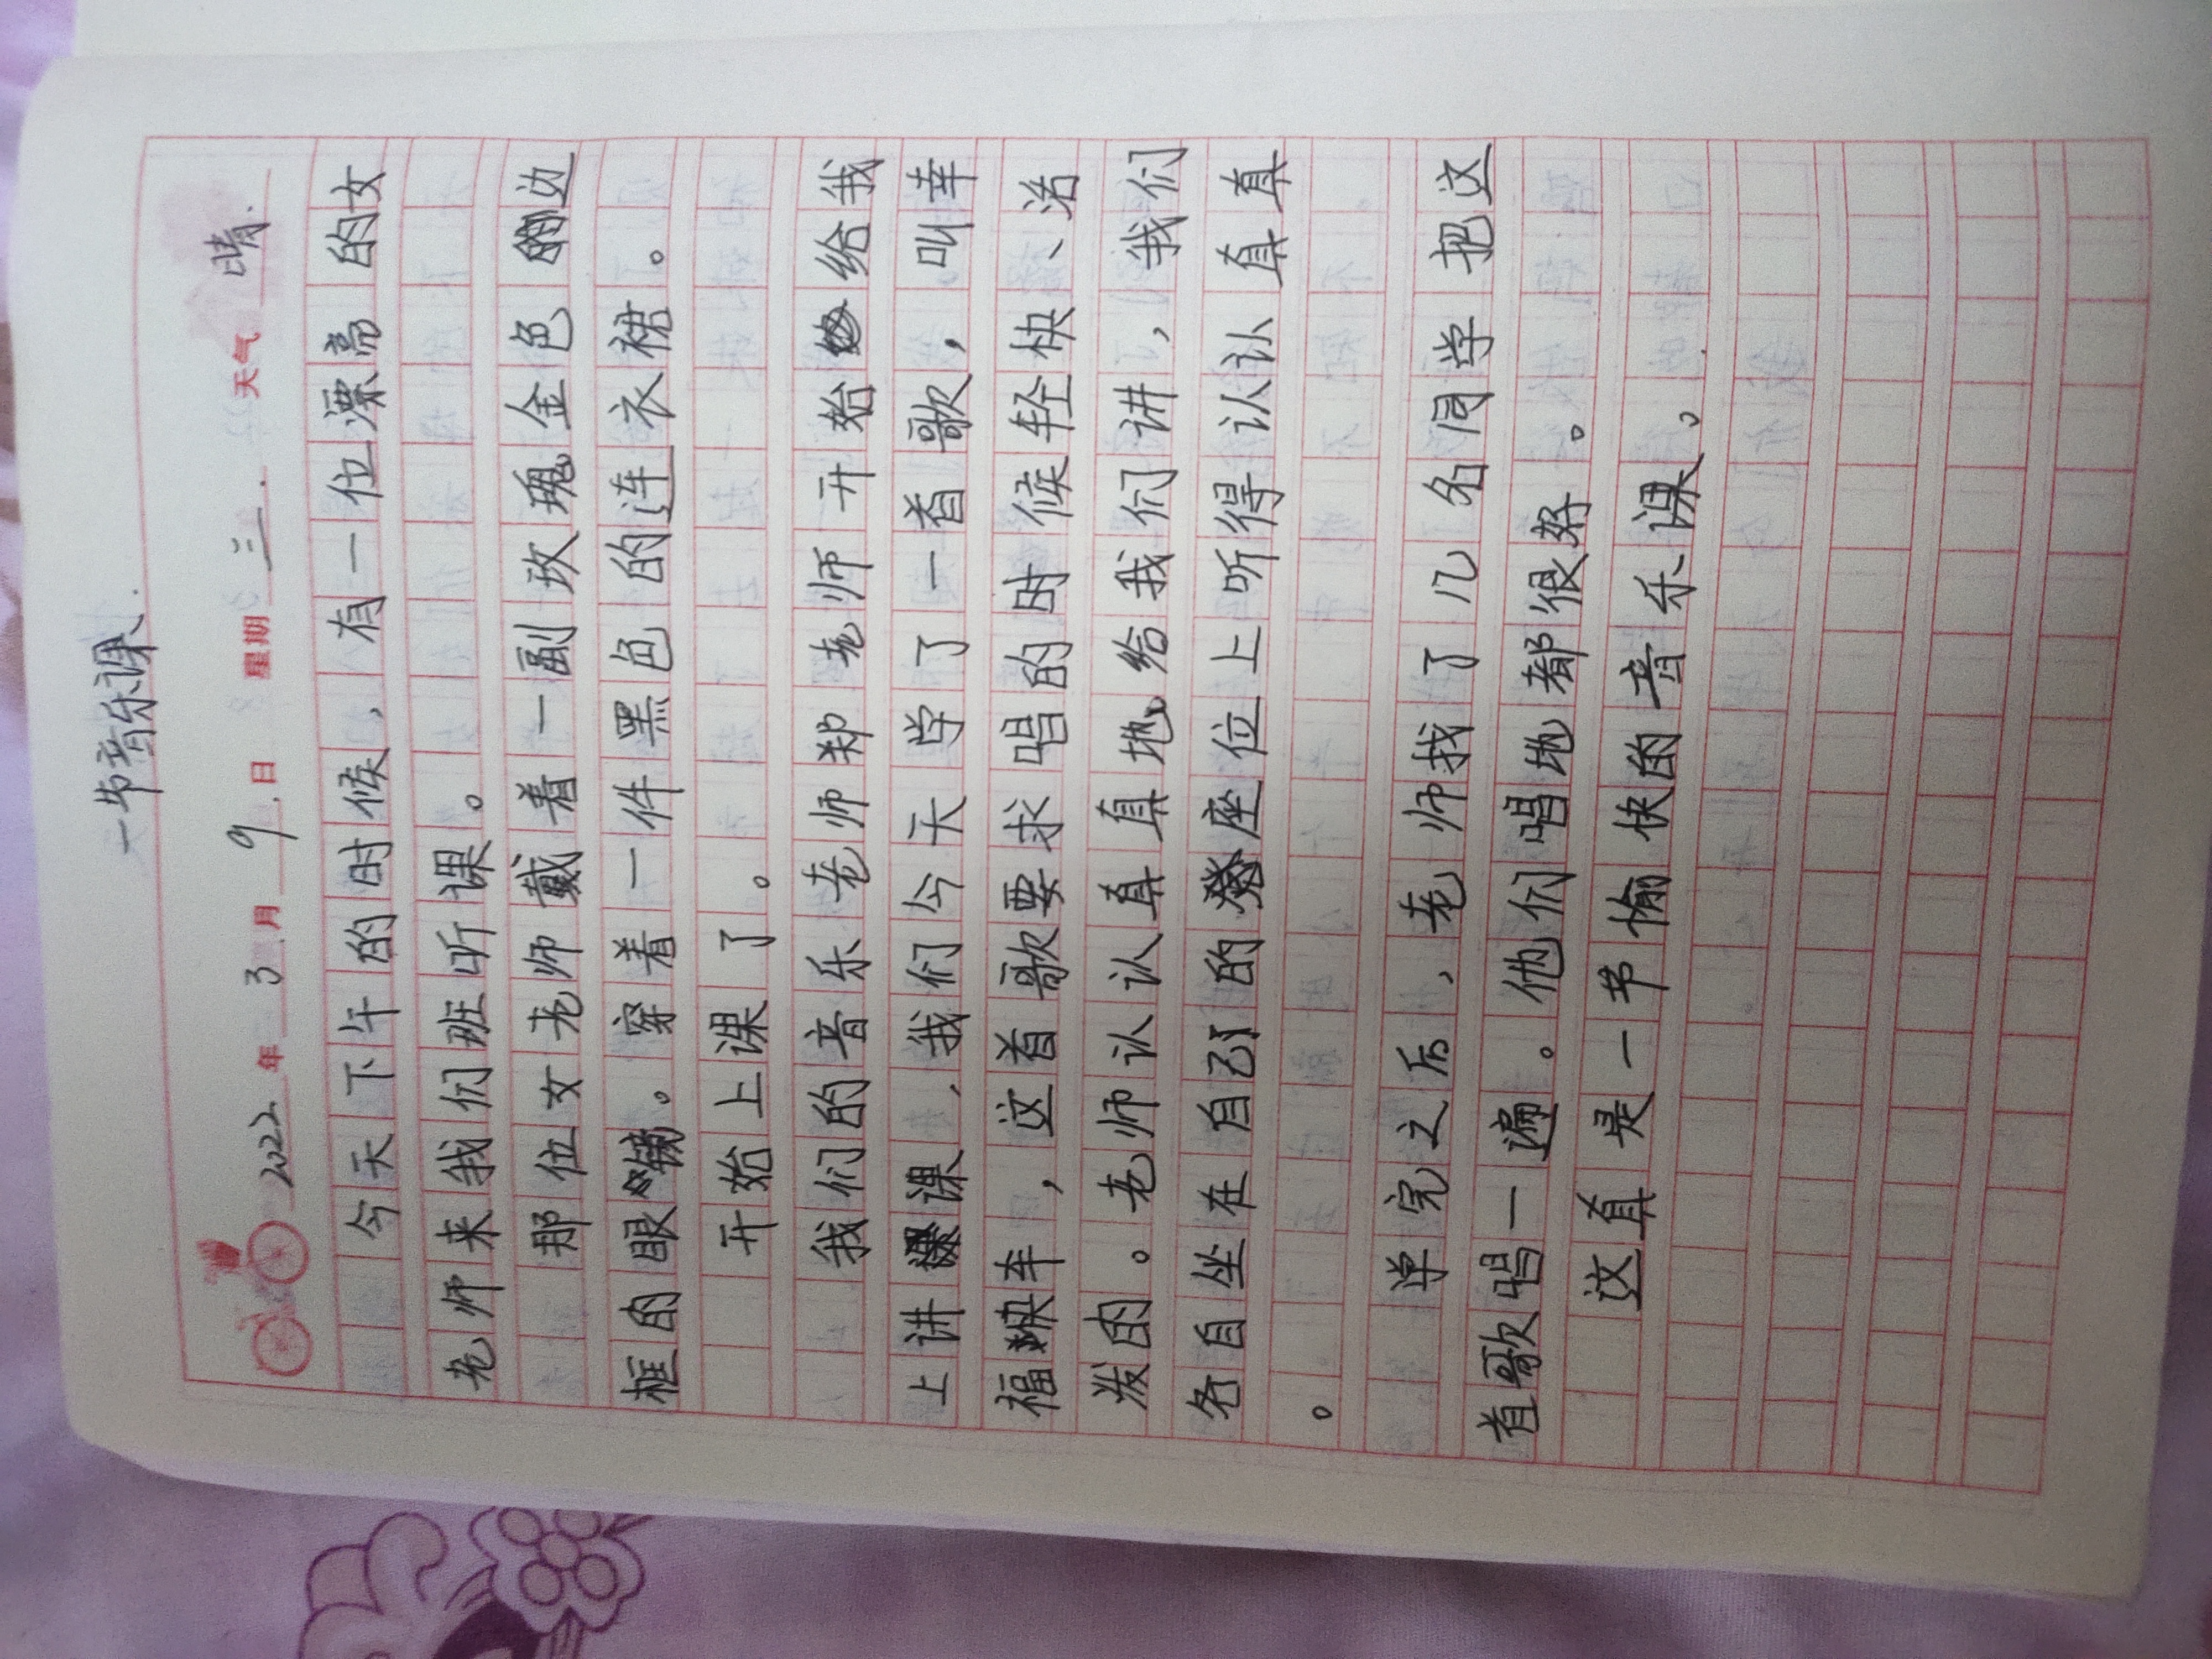 一节音乐课.
2022年 3月 9日 星期 三. 天气 晴.
今天下午的时候,有一位漂亮的女
老师来我们班听课。
那位女老师戴着一副玫瑰金色的边
框的眼镜。穿着一件黑色的连衣裙。
开始上课了。
我们的音乐老师郑老师开始给我
上讲课,我们今天学了一首歌,叫幸
福快车,这首歌要求唱的时候轻快、活
泼的。老师认认真真地给我们讲,我们
各自坐在自己的座位上听得认认真真
。
学完之后,老师找了几名同学把这
首歌唱一遍。他们唱地都很好。
这真是一节愉快的音乐课。